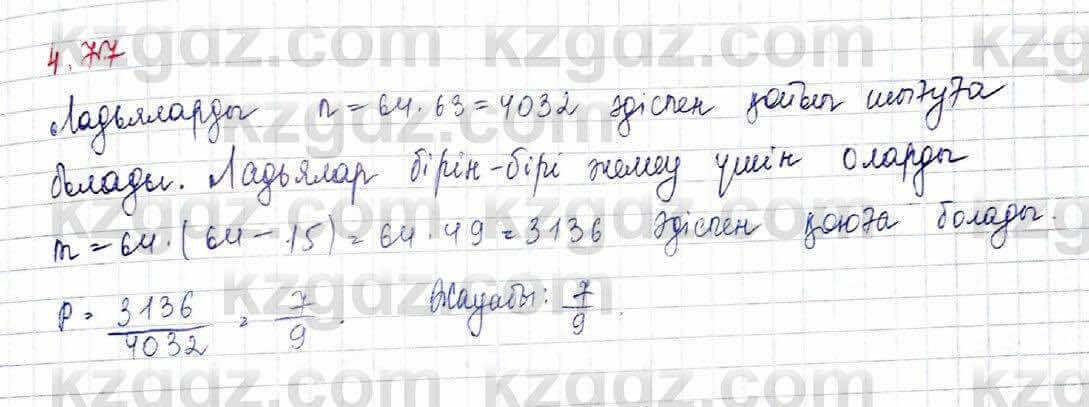 4.77
Ладьяларды n = 64 · 63 = 4032 әдіспен қойып шығуға
болады. Ладьялар бірін-бірі жемеу үшін оларды
m = 64 · (64 - 15) = 64 · 49 = 3136 әдіспен қоюға болады.
P = 3136/4032 = 7/9. Жауабы: 7/9.
kzgdz.com